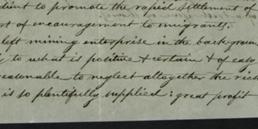 dient to promote the rapid settlement of
of encouragement to immigrants.
left mining enterprise in the background
to what is positive & certain & of easy
reasonable to neglect altogether the rich
is so plentifully supplied: great profit